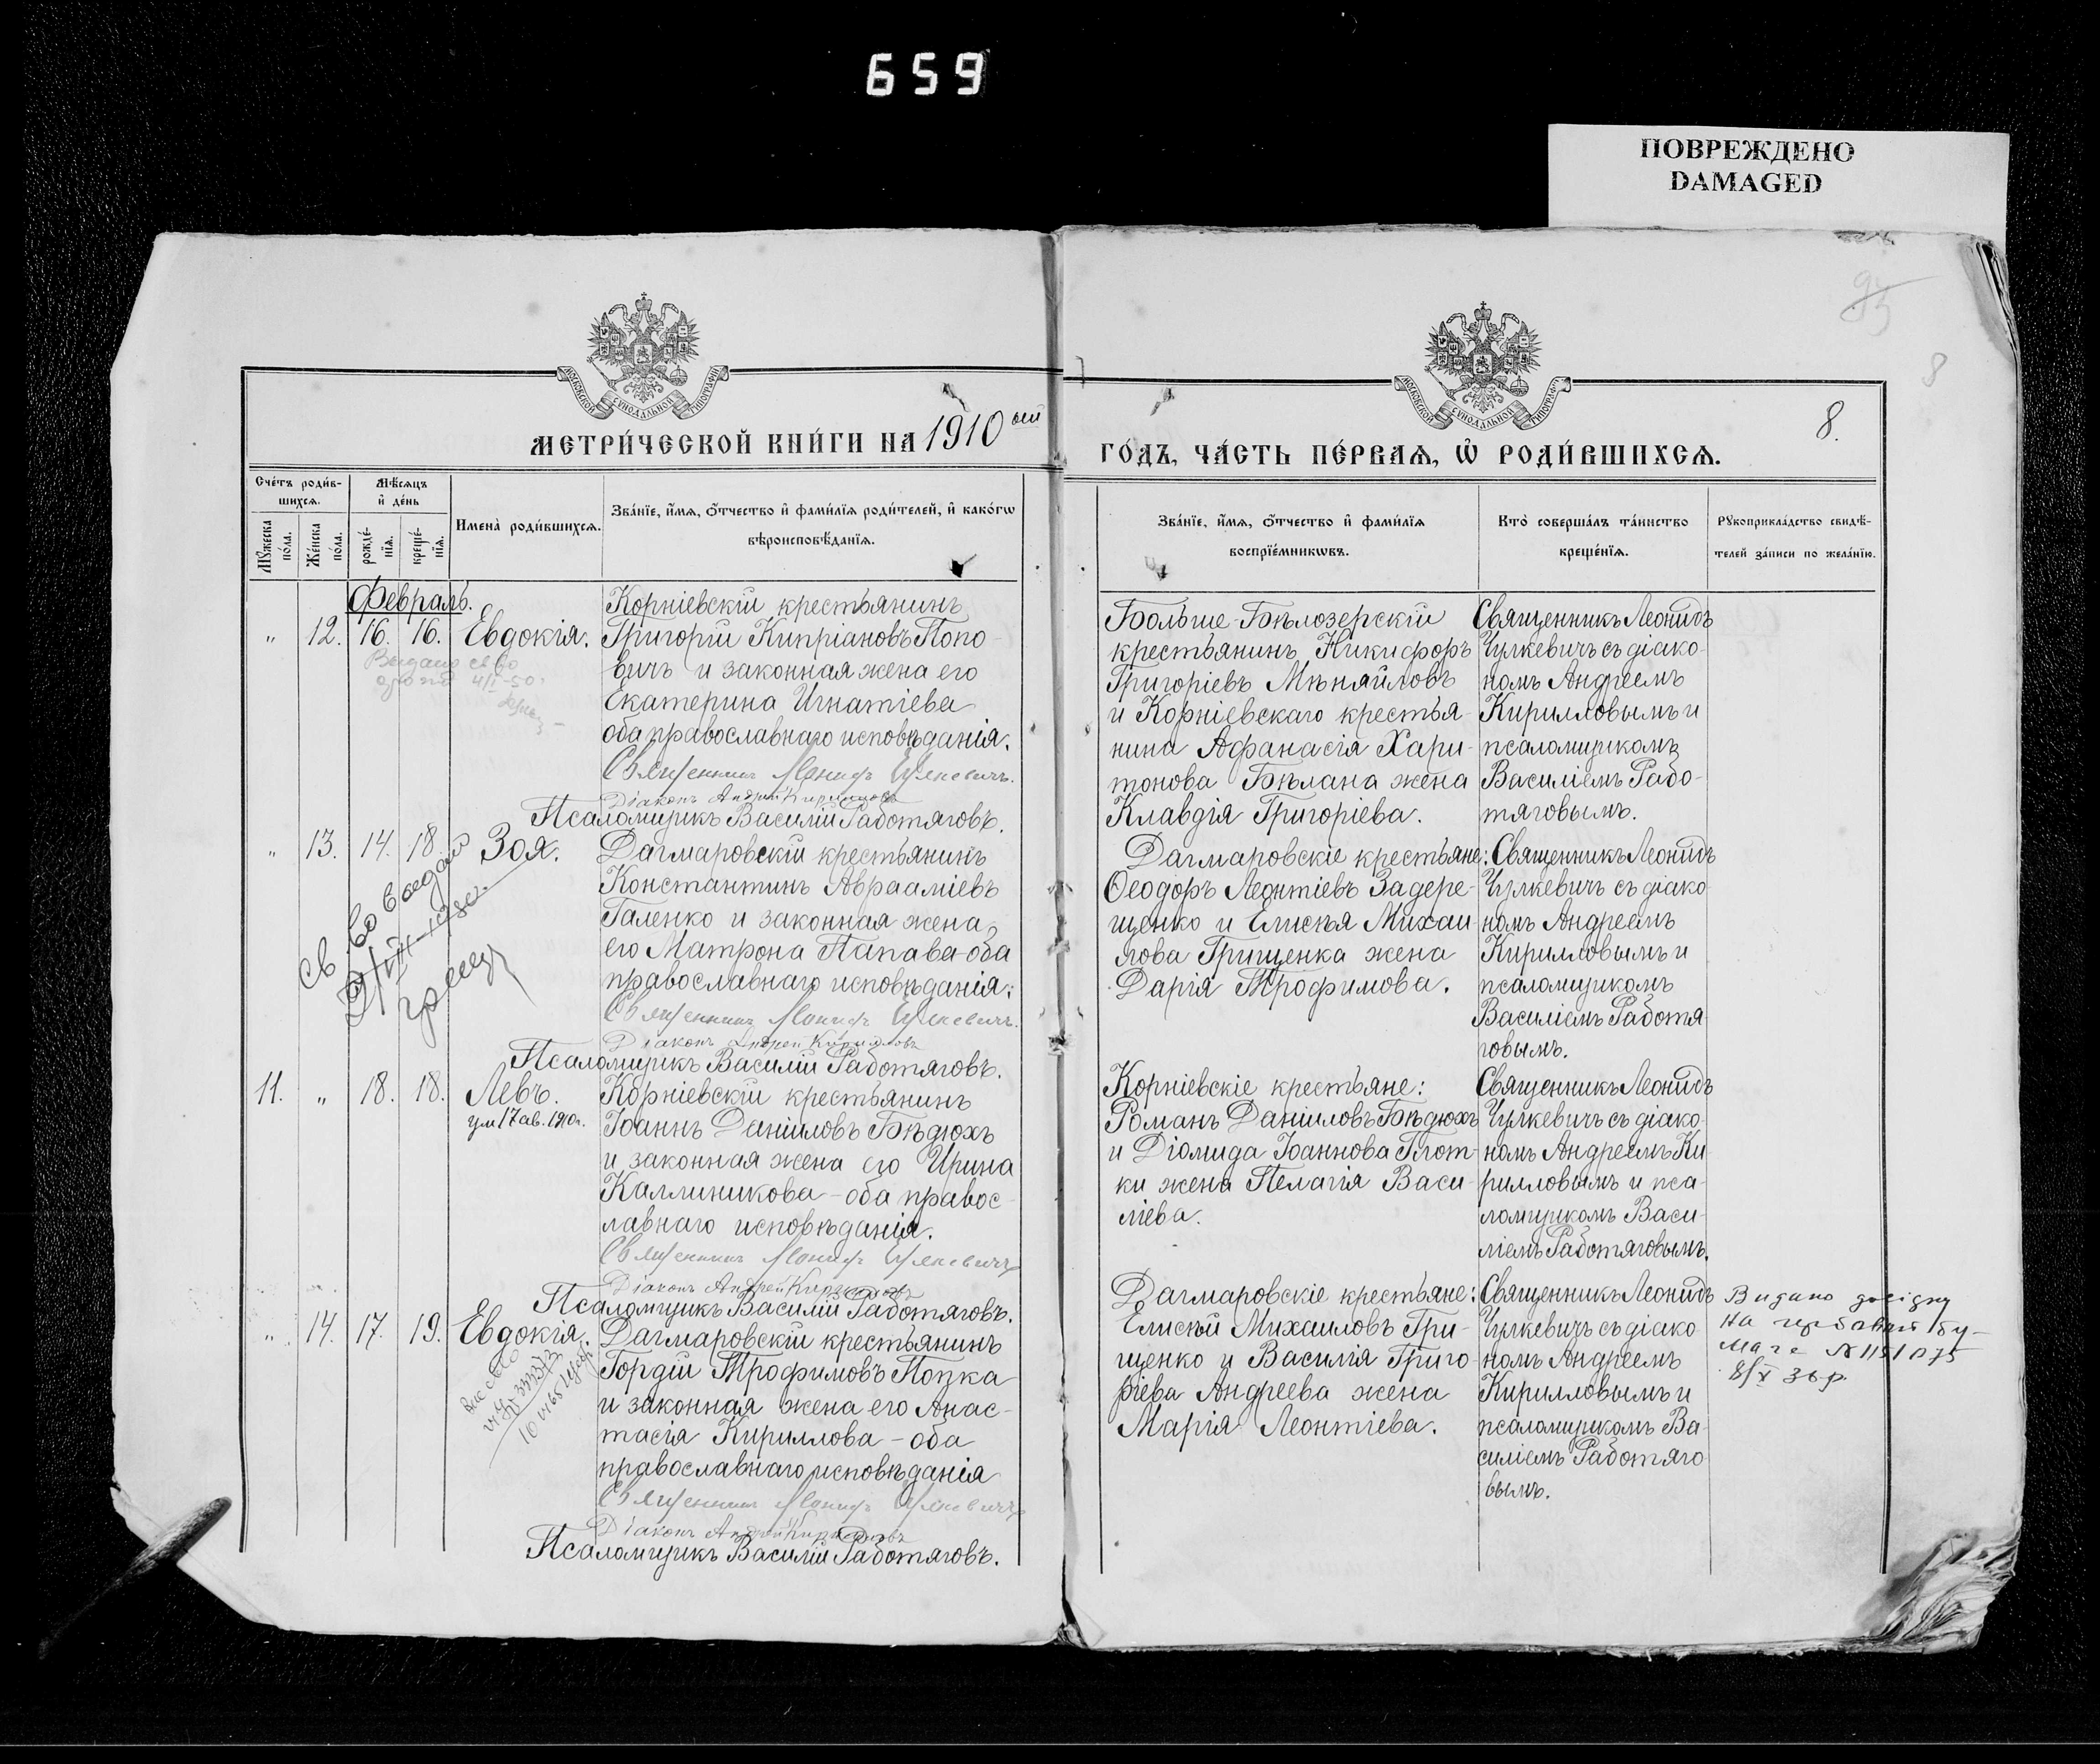 659
ПОВРЕЖДЕНО
DAMAGED
93
8
МОСКОВСКОЙ СѴНОДАЛЬНОЙ ТИПОГРАФІИ
МОСКОВСКОЙ СѴНОДАЛЬНОЙ ТИПОГРАФІИ
8.
МЕТРИ́ЧЕСКОЙ КНИ́ГИ НА 1910ый
ГО́ДЪ, ЧА́СТЬ ПЕ́РВАѦ, Ѡ҆ РОДИ́ВШИХСѦ.
Сче́тъ роди́в-
шихсѧ.
Мѣ́сѧцъ
и҆ де́нь
Мꙋ́жеска
по́ла.
Же́нска
по́ла.
рожде́-
нїѧ.
креще́-
нїѧ.
Имена̀ роди́вшихсѧ.
Зва́нїе, и҆́мѧ, ѻ҆́тчество и҆ фами́лїѧ роди́телей, и҆ како́гѡ
вѣроисповѣ́данїѧ.
Зва́нїе, и҆́мѧ, ѻ҆́тчество и҆ фами́лїѧ
воспрїе́мникѡвъ.
Кто̀ соверша́лъ та́инство
креще́нїѧ.
Рꙋкоприкла́дство свидѣ́-
телей за́писи по жела́нїю.
Февраль.
" 12. 16. 16. Евдокія.
Корніевскій крестьянинъ
Григорій Кипріановъ Попо-
вичъ и законная жена его
Екатерина Игнатіева
оба православнаго исповѣданія.
Священникъ Леонидъ Чулкевичъ.
Діаконъ Андрей Кирилловъ
Псаломщикъ Василій Работяговъ.
Выдано св во
4/I-50.
Больше-Бѣлозерскій
крестьянинъ Никифоръ
Григоріевъ Мѣняйловъ
и Корніевскаго крестья-
нина Афанасія Хари-
тонова Бѣлана жена
Клавдія Григоріева.
Священникъ Леонидъ
Чулкевичъ съ діако-
номъ Андреемъ
Кирилловымъ и
псаломщикомъ
Василіемъ Рабо-
тяговымъ.
" 13. 14. 18. Зоя.
Дагмаровскій крестьянинъ
Константинъ Авраамiевъ
Галенко и законная жена
его Матрона Папава-оба
православнаго исповѣданія.
Священникъ Леонидъ Чулкевичъ.
Діаконъ Андрей Кирилловъ
Псаломщикъ Василій Работяговъ.
св-во выдано
Дагмаровскіе крестьяне:
Ѳеодоръ Леонтіевъ Задере-
щенко и Елисѣя Михаи-
лова Грищенка жена
Дарія Трофимова.
Священникъ Леонидъ
Чулкевичъ съ діако-
номъ Андреемъ
Кирилловымъ и
псаломщикомъ
Василіемъ Работя
говымъ.
11. " 18. 18. Левъ.
ум 17 ав. 1910г.
Корніевскій крестьянинъ
Іоаннъ Даніиловъ Бѣдюхъ
и законная жена его Ирина
Каллиникова-оба правос-
лавнаго исповѣданія.
Священникъ Леонидъ Чулкевичъ
Діаконъ Андрей Кирилловъ
Псаломщикъ Василій Работяговъ.
Корніевскіе крестьяне:
Романъ Даніиловъ Бѣдюхъ
и Діомида Іоаннова Плот-
ки жена Пелагія Васи-
ліева.
Священникъ Леонидъ
Чулкевичъ съ діако-
номъ Андреемъ Ки
рилловымъ и пса-
ломщикомъ Васи-
ліемъ Работяговымъ.
" 14. 17. 19. Евдокія.
Дагмаровскій крестьянинъ
Гордій Трофимовъ Попка
и законная жена его Анас-
тасія Кириллова-оба
православнаго исповѣданія
Священникъ Леонидъ Чулкевичъ
Діаконъ Андрей Кирилловъ
Псаломщикъ Василій Работяговъ.
Дагмаровскіе крестьяне:
Елисѣй Михаиловъ Гри-
щенко и Василія Григо-
ріева Андреева жена
Марія Леонтіева.
Священникъ Леонидъ
Чулкевичъ съ діако
номъ Андреемъ
Кирилловымъ и
псаломщикомъ Ва-
силіемъ Работяго
вымъ.
Видано довідку
на гербовий бу-
маге № 1151075
8/X 36 р.